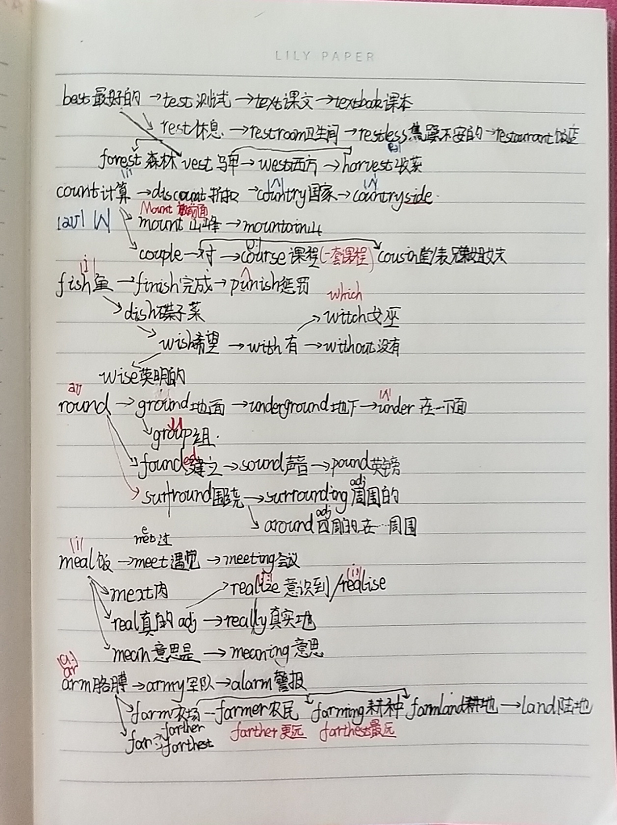 LILY PAPER
best 最好的 →test 测试 →text 课文→textbook 课本
rest 休息 →restroom 卫生间→restless 焦躁不安的→restaurant 饭店
forest 森林 vest 马甲→west 西方→harvest 收获
count 计算→discount 折扣→country 国家→countryside
Mount 放前面
/aʊ/ /ʌ/ mount 山峰→mountain 山
couple 一对→course 课程(一套课程) cousin
/i/
fish 鱼→finish 完成→punish 惩罚
which
dish 碟子菜 witch 女巫
wish 希望→with 有→without 没有
wise 英明的
round→ground 地面→underground 地下→under 在…下面
group 组
founded 建立→sound 声音→pound 英镑
surround 围绕→surrounding adj 周围的
around adj 四周的在…周围
/i/
meal 饭→meet met 遇见→meeting 会议
meat 肉 realize 意识到/realise
real 真的 adj→really 真实地
mean 意思是→meaning 意思
arm 胳膊→army 军队→alarm 警报
farm 农场→farmer 农民 farming 耕种 farmland 耕地→land 陆地
far farther farthest farther 更远 farthest 最远